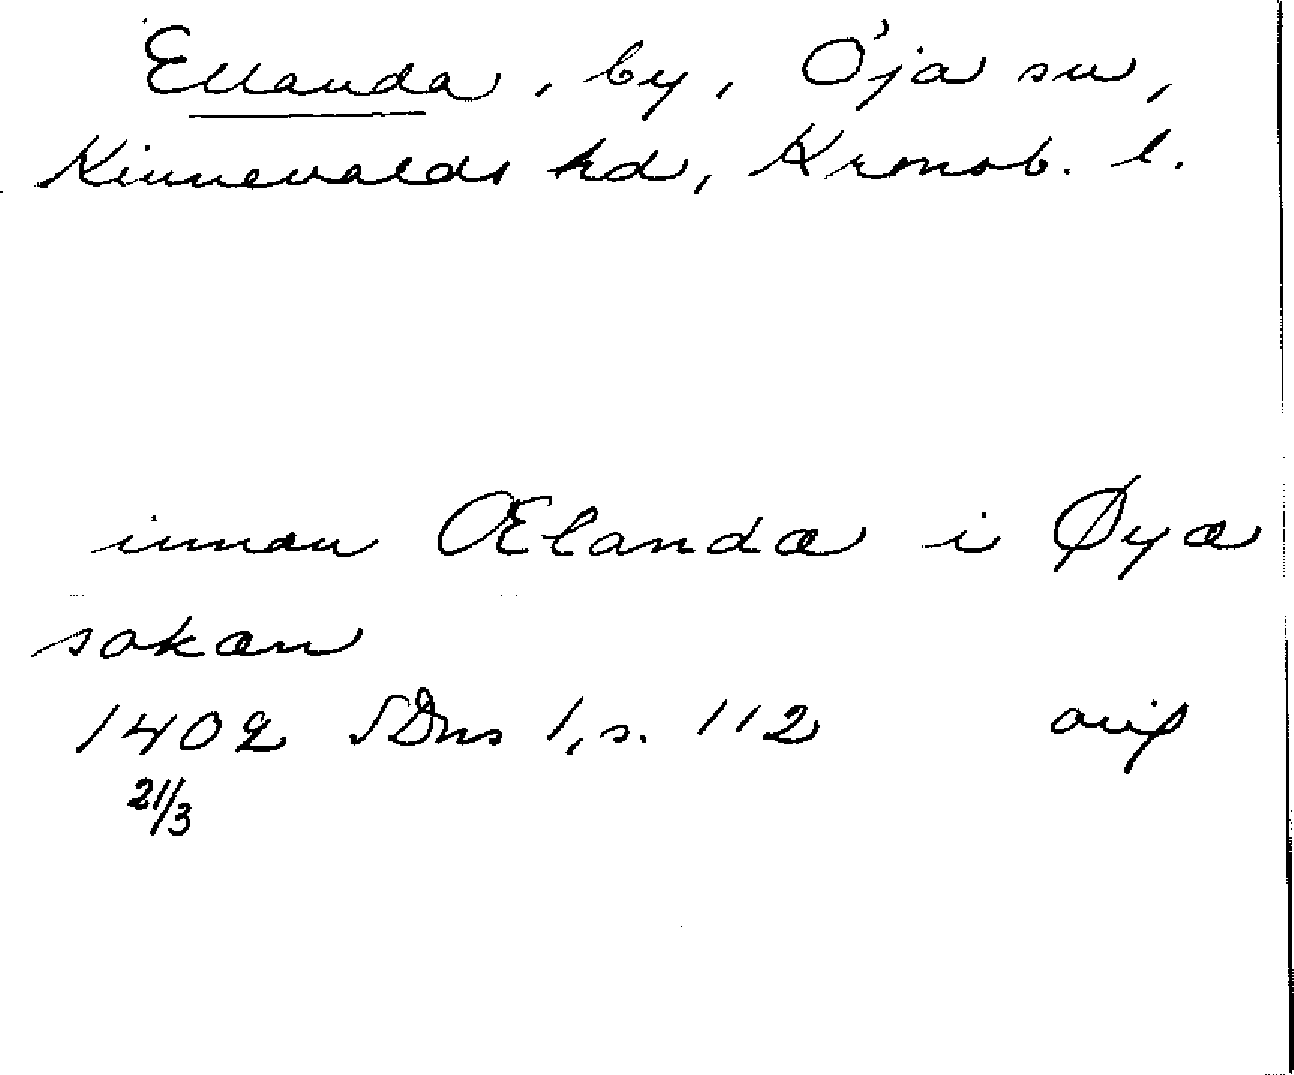 Ellanda, by, Öja sn,
Kinnevalds hd, Kronob. l.
innan Ælanda i Øya
sokæn
1402 SDns 1, s. 112 avs
21/3